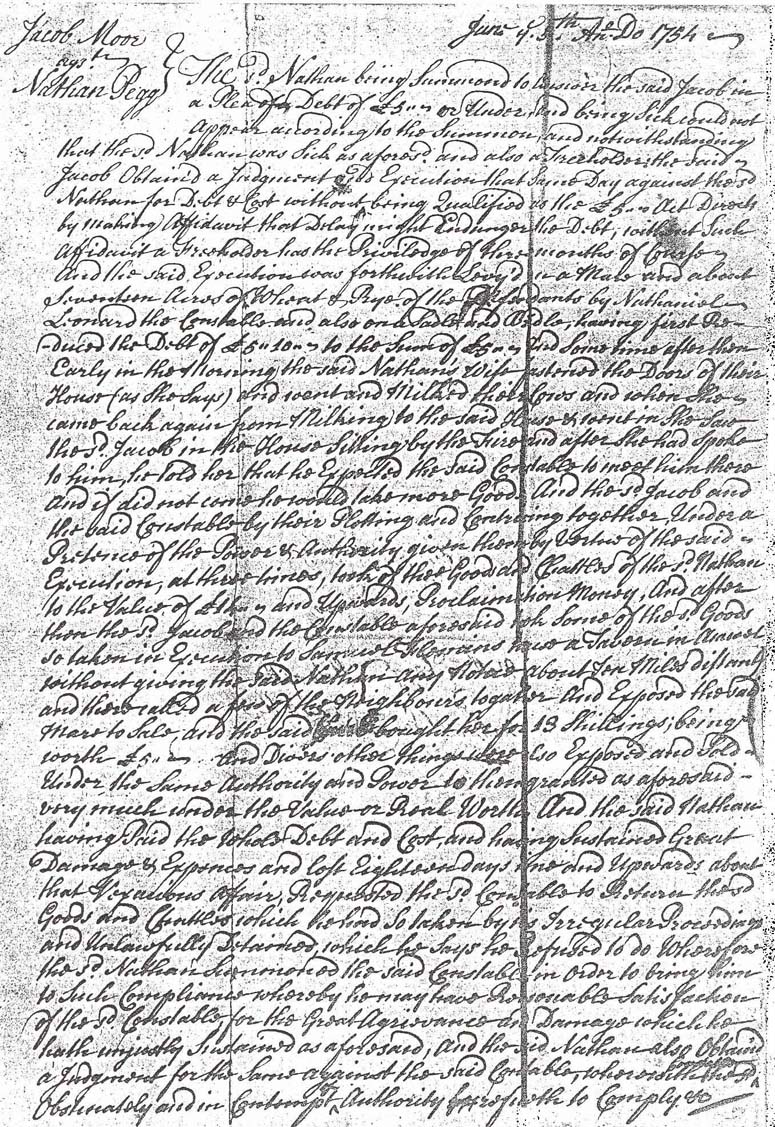 Jacob Moor
agst
Nathan Pegg
June ye 5th Ano Do 1754
The sd Nathan being Summond to Answer the said Jacob in
a Plea of Debt of £5 " " or Under, and being Sick could not
Appear according to the Summon, and notwithstanding
that the sd Nathan was Sick as aforesd and also a Freeholder, the said
Jacob Obtaind a Judgment & Execution that Same Day against the sd
Nathan for Debt & Cost without being Qualified as the £5 " " Act Directs
by making Affidavit that Delay might Endanger the Debt, without Such
Affidavit a Freeholder has the Priviledge of three months of Course
And the said Execution was forthwith Levy'd on a Mare and about
Seventeen Acres of Wheat & Rye of the Defendants by Nathaniel
Leonard the Constable and also on a Sadle and Bridle, having first Re-
duced the Debt of £5 " 10 " " to the Sum of £5 " " And Sometime after then
Early in the Morning the said Nathan's Wife fastened the Doors of their
House (as She Says) and went and Milked their Cows and when She
came back again from Milking to the said House & went in She Saw
the sd Jacob in the House Sitting by the Fire and after She had Spoke
to him, he told her that he Expected the said Constable to meet him there
And if did not come he would take more Goods. And the sd Jacob and
the said Constable by their Plotting and Contriving together, Under a
Pretence of the Power & Authority given them by Vertue of the said
Execution, at three times, took of thee Goods and Chattles of the sd Nathan
to the Value of and Upwards, Proclamation Money, And after
then the sd Jacob and the Constable aforesaid took Some of the sd Goods
so taken in Execution to Samuel Flemains a Tavern in Amwel
without giving the said Nathan any Notice about Ten Miles distant
and there called a few of the Neighbours together And Exposed the said
Mare to Sale, and the said bought her for 13 Shillings; being
worth £5 " " And Divers other things were also Exposed and Sold
Under the Same Authority and Power to them granted as aforesaid
very much under the Value or Real Worth And the said Nathan
having Paid the Whole Debt and Cost, and having Sustained Great
Damage & Expences and lost Eighteen Days time and Upwards about
that Vexatious Affair, Requested the sd Constable to Return the sd
Goods and Chattles which he had So taken by his Irregular Proceedings
and Unlawfully Detained, which he Says he Refused to do Wherefore
the sd Nathan Summoned the said Constable in Order to bring him
to Such Compliance whereby he may have Reasonable Satisfaction
of the sd Constable, for the Great Agrievance and Damage which he
hath unjustly Sustained as aforesaid, And the sd Nathan also Obtaind
a Judgment for the Same against the said Constable, wherewith the sd
Constable
Obstinately and in Contempt of Authority refuseth to Comply &c